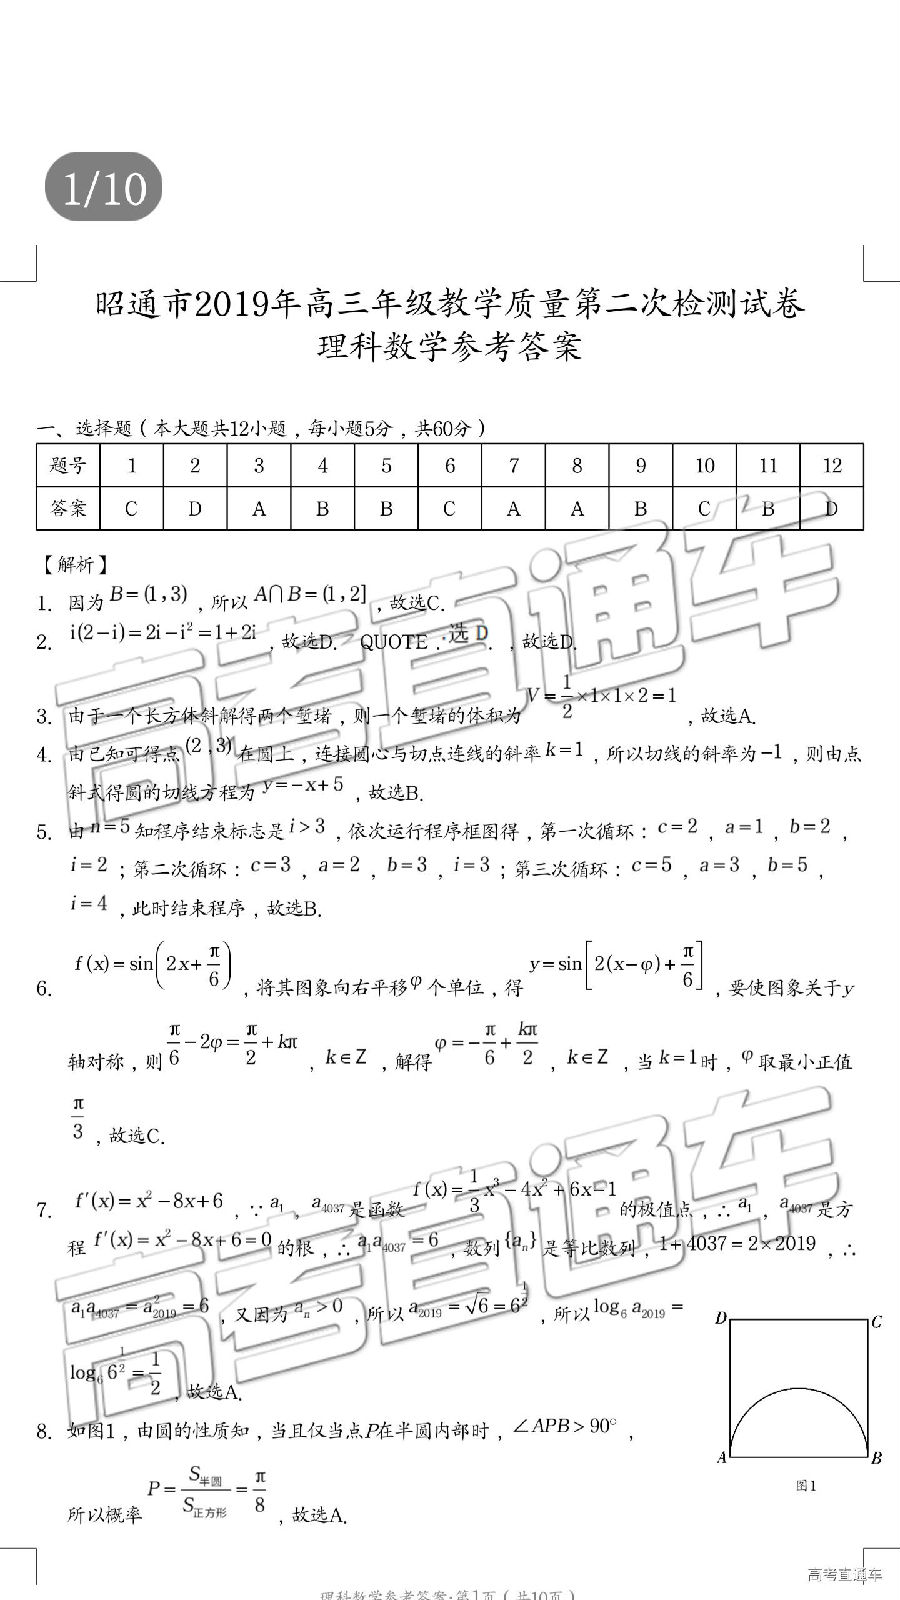 1/10
昭通市2019年高三年级教学质量第二次检测试卷
理科数学参考答案
一、选择题（本大题共12小题，每小题5分，共60分）
题号 1 2 3 4 5 6 7 8 9 10 11 12
答案 C D A B B C A A B C B D
【解析】
1. 因为 B=(1,3) ，所以 A∩B=(1,2] ，故选C.
2. i(2−i)=2i−i²=1+2i ，故选D. QUOTE . 选 D . ，故选D.
3. 由于一个长方体斜解得两个堑堵，则一个堑堵的体积为 V=1/2×1×1×2=1 ，故选A.
4. 由已知可得点 (2,3) 在圆上，连接圆心与切点连线的斜率 k=1 ，所以切线的斜率为 −1 ，则由点
斜式得圆的切线方程为 y=−x+5 ，故选B.
5. 由 n=5 知程序结束标志是 i>3 ，依次运行程序框图得，第一次循环：c=2 ，a=1 ，b=2 ，
i=2 ；第二次循环：c=3 ，a=2 ，b=3 ，i=3 ；第三次循环：c=5 ，a=3 ，b=5 ，
i=4 ，此时结束程序，故选B.
6. f(x)=sin(2x+π/6) ，将其图象向右平移 φ 个单位，得 y=sin[2(x−φ)+π/6] ，要使图象关于y
轴对称，则 π/6−2φ=π/2+kπ ，k∈Z ，解得 φ=−π/6+kπ/2 ，k∈Z ，当 k=1 时，φ 取最小正值
π/3 ，故选C.
7. f′(x)=x²−8x+6 ，∵ a₁ ，a₄₀₃₇ 是函数 f(x)=1/3x³−4x²+6x−1 的极值点，∴ a₁ ，a₄₀₃₇ 是方
程 f′(x)=x²−8x+6=0 的根，∴ a₁a₄₀₃₇=6 ，数列 {aₙ} 是等比数列，1+4037=2×2019 ，∴
a₁a₄₀₃₇=a²₂₀₁₉=6 ，又因为 aₙ>0 ，所以 a₂₀₁₉=√6=6^(1/2) ，所以 log₆ a₂₀₁₉=
log₆ 6^(1/2)=1/2 ，故选A.
D C
8. 如图1，由圆的性质知，当且仅当点P在半圆内部时，∠APB>90° ，
A B
图1
所以概率 P=S半圆/S正方形=π/8 ，故选A.
高考直通车
高考直通车
高考直通车
理科数学参考答案·第1页（共10页）